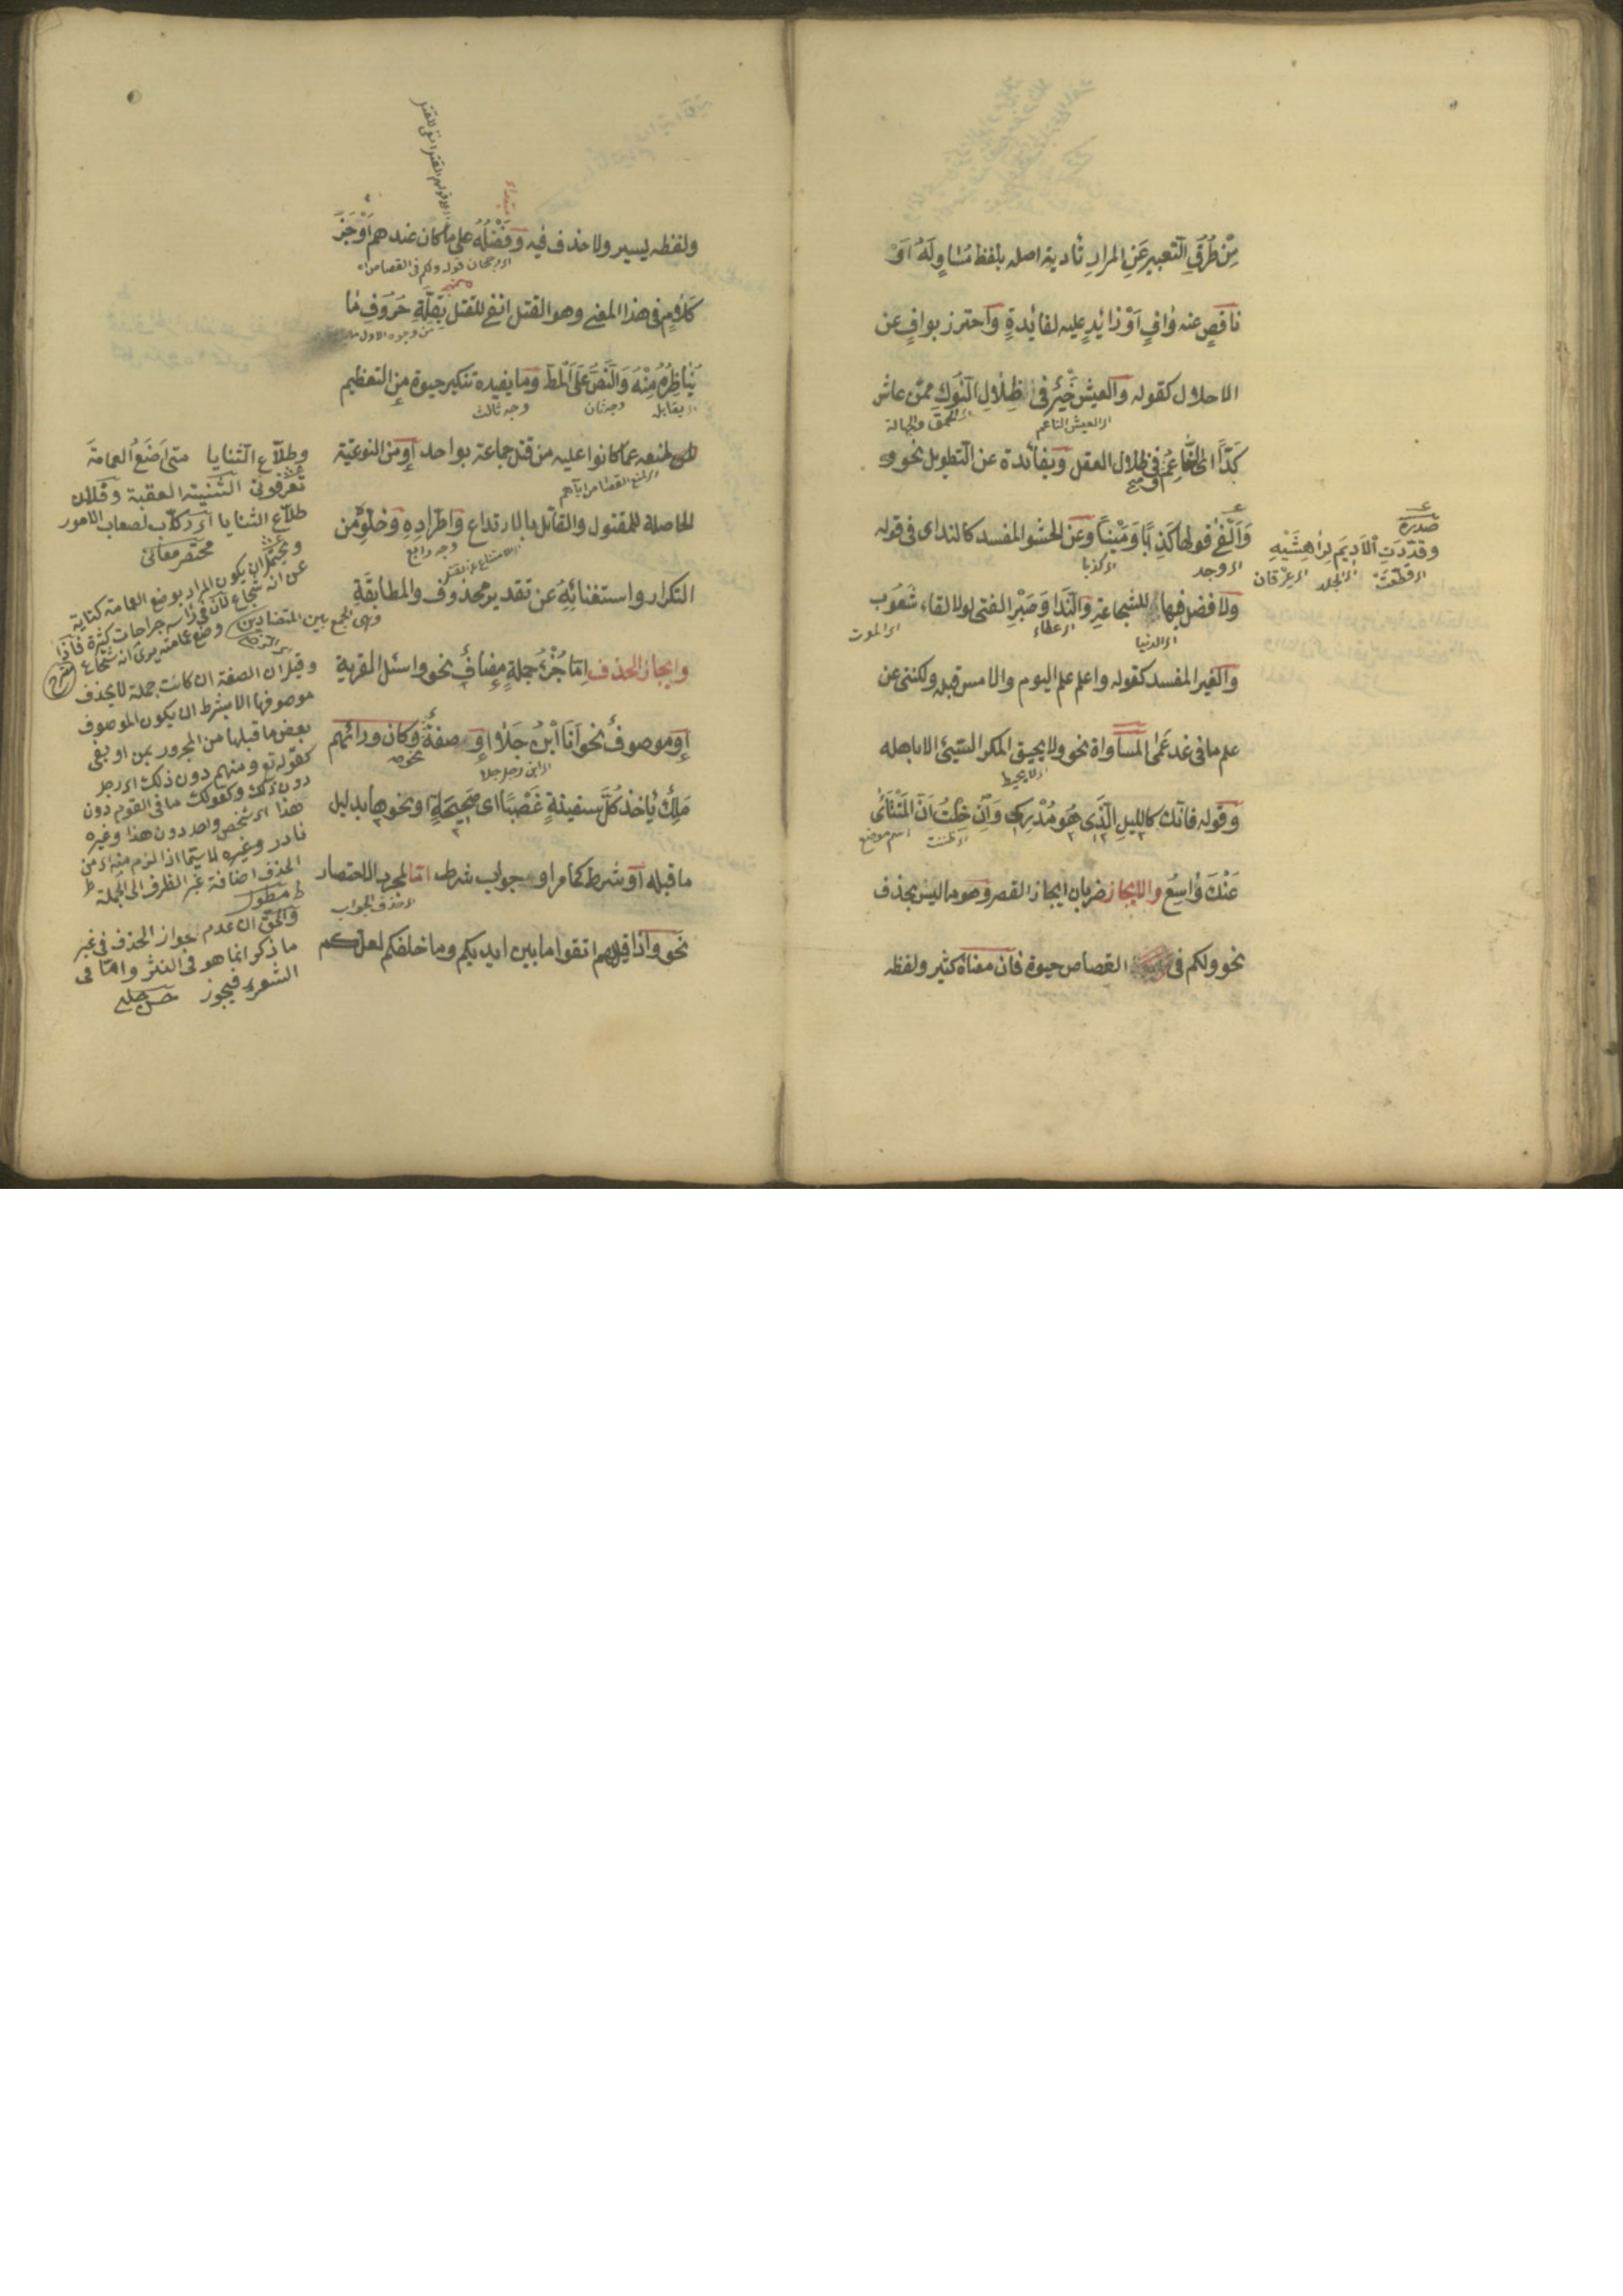 مِنْ طُرُقِ التعبير عَنِ المرادِ تأدية اصله بلفظ مُسَاوٍ لَهُ اَوْ
ناقصٍ عنه وافٍ اَوْ زائدٍ عليه لفائدةٍ واحترز بوافٍ عن
الاخلال كقوله والعيش خَيْرٌ فى ظِلَالِ النُّوكِ ممّن عاش
اى الحمق والجهالة
اى العيش الناعم
كَدًّا اى النَّاعِمُ وفى ظلال العقل وبفائدة عن التطويل نحو و
وَاَلْفَى قولها كَذِبًا وَمَيْنًا وعن الحشو المفسد كالندى فى قوله
اى وجد
اى كذبا
صدره
وقدّدَتِ الْاَدِيمَ لِرَاهِشَيْهِ
اى قطعت
اى الجلد
اى عرقان
ولا فضل فيها للشجاعةِ والنَّدَا وَصَبْرِ الفتى لولا لقاء شَعُوبِ
اى الدنيا
اى عطاء
اى الموت
والغير المفسد كقوله واعلم علم اليوم والامس قبله ولكننى عن
علم ما فى غد عَمٰى المساواة نحو ولا يحيق المكر السَّيّئ الا باهله
اى لا يحيط
وقوله فانك كالليل الَّذِى هُوَ مُدْرِكِى وَاِنْ خِلْتُ اَنَّ الْمُنْتَأٰى
اى ظننت
اسم موضع
عَنْكَ وَاسِعُ والايجاز ضربان ايجاز القصر وهو ما ليس بحذف
نحو ولكم فى القصاص حيوة فان معناه كثير ولفظه
ولفظه يسير ولا حذف فيه وَفَضْلُهُ على ما كان عندهم اَوْجَزَ
اى رجحان قوله ولكم فى القصاص اه
كَلَامٍ فى هذا المعنى وهو القتل انفى للقتل بِقِلَّةِ حُرُوفِ مَا
يُنَاظِرُهُ مِنْهُ وَالنَّصِّ عَلَى الْمط وما يفيده تنكير حيوة من التعظيم
اى يقابل
وجه ثان
وجه ثالث
لمنعه عمّا كانوا عليه من قتل جماعة بواحد اَوْ من النوعيّة
الحاصلة للمقتول والقاتل بالارتداع واطّرادِهِ وَخلوّه من
وجه رابع
التكرار واستغنائِهِ عن تقدير محذوف والمطابقَةِ
وهى الجمع بين المتضادين
وايجاز الحذف اِمّا جُزْءُ جملةٍ مضافٌ نحو واسئل القرية
اَوْ موصوفٌ نحو اَنَا ابْنُ جَلَا اَوْ صفةٌ نحو وكان ورائهم
اى ابن رجل جلا
مَلِكٌ يأخذ كُلَّ سفينةٍ غَصْبًا اى صَحِيحَةٍ او نحوها بدليل
ما قبله اَوْ شرط كما مر او جواب شرط امّا لمجرد الاختصار
اى حذف الجواب
نحو واذا قيل لهم اتقوا ما بين ايديكم وما خلفكم لعلّكم
وطلّاع الثنايا متى اَضَعُ العمامةَ
تعرفونى الثنية العقبة وفلان
طلّاع الثنايا اى ركّاب لصعاب الامور
مختصر معانى
ويحتمل ان يكون المراد بوضع العمامة كناية
عن انه شجاع لان فى رأسه جراحات كثيرة فاذا
وضع عمامته يرى انه شجاع
وقيل ان الصفة ان كانت جملة لا يحذف
موصوفها الا بشرط ان يكون الموصوف
بعض ما قبلها من المجرور بمن او بفى
كقوله تع ومنهم دون ذلك اى رجل
دون ذلك وكقولك ما فى القوم دون
هذا اى شخص واحد دون هذا وغيره
نادر وغيره لا سيّما اذا لزم منه اى من
الحذف اضافة غير الظرف الى الجملة
مطول
والحق ان عدم جواز الحذف فى غير
ما ذكر انما هو فى النثر وامّا فى
الشعر فيجوز حسن چلبى